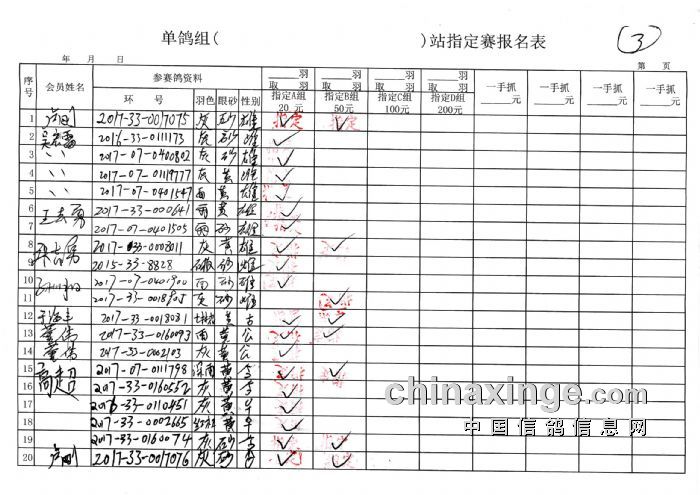 单鸽组( )站指定赛报名表
(3)
年 月 日
第 页
序号 会员姓名 参赛鸽资料 羽 取 羽 羽 取 羽 羽 取 羽 羽 取 羽 一手抓 元 一手抓 元 一手抓 元 一手抓 元
环 号 羽色 眼砂 性别 指定A组 20 元 指定B组 50元 指定C组 100元 指定D组 200元
1 2017-33-0017075 灰 砂 雄 指定 ✓ 指定 ✓
2 2016-33-0111173 灰 砂 雄 ✓
3 〃 2017-07-0400802 灰 砂 雄 ✓
4 〃 2017-07-0119777 灰 黄 雄 ✓
5 〃 2017-07-0401547 雨 黄 雄 ✓
6 王志勇 2017-33-000641 雨 黄 雄 ✓
7 2017-07-0401505 雨 砂 雄 ✓
8 2017-33-0008011 灰 黄 雄 ✓ ✓
9 2015-33-8828 砂 雄 ✓
10 2017-07-0401900 雨 砂 雄 ✓
11 2017-33-0018905 灰 砂 雄 ✓
12 2017-33-0018081 ✓ ✓
13 董伟 2017-33-0160093 雨 黄 公 ✓ ✓
14 董伟 2017-33-0002103 灰 黄 公 ✓
15 高超 2017-07-0111798 深雨 黄 ✓ ✓
16 2017-33-0160552 灰 黄 ✓
17 2016-33-0110451 灰 黄 ✓
18 2017-33-0002665 黄 ✓
19 2017-33-0160074 灰 砂 ✓ ✓
20 2017-33-0017076 灰 砂 ✓ ✓
chinaxinge.com
中国信鸽信息网